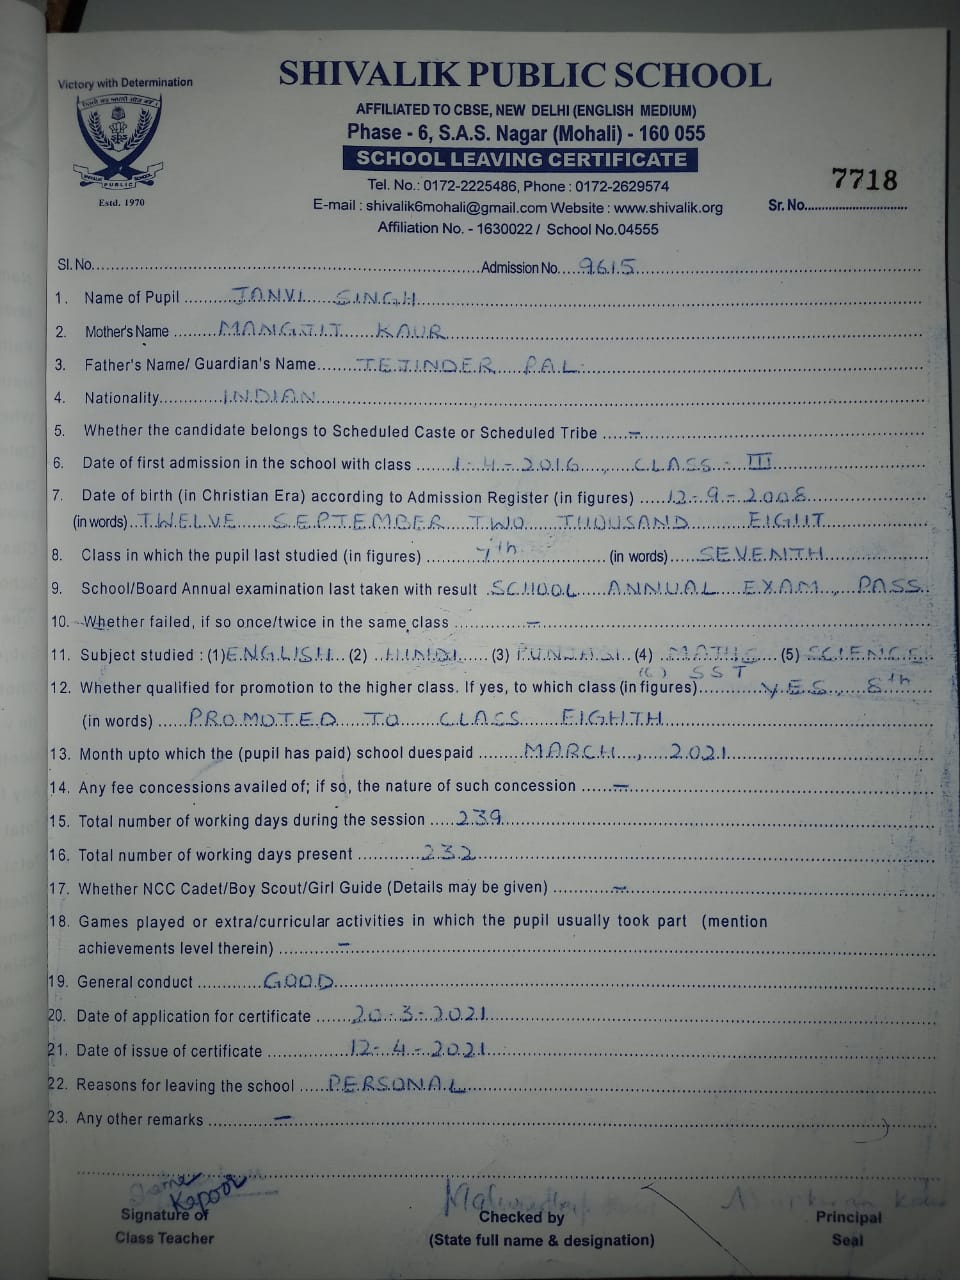 Victory with Determination
SHIVALIK PUBLIC SCHOOL
AFFILIATED TO CBSE, NEW DELHI (ENGLISH MEDIUM)
Phase - 6, S.A.S. Nagar (Mohali) - 160 055
SCHOOL LEAVING CERTIFICATE
PUBLIC
Estd. 1970
Tel. No.: 0172-2225486, Phone : 0172-2629574
E-mail : shivalik6mohali@gmail.com Website : www.shivalik.org
Affiliation No. - 1630022 / School No.04555
7718
Sr. No.
Sl. No. Admission No. 9615
1. Name of Pupil JANVI SINGH
2. Mother's Name MANGJIT KAUR
3. Father's Name/ Guardian's Name TEJINDER PAL
4. Nationality INDIAN
5. Whether the candidate belongs to Scheduled Caste or Scheduled Tribe –
6. Date of first admission in the school with class 1-4-2016, CLASS - III
7. Date of birth (in Christian Era) according to Admission Register (in figures) 12-9-2008
(in words) TWELVE SEPTEMBER TWO THOUSAND EIGHT
8. Class in which the pupil last studied (in figures) 7th (in words) SEVENTH
9. School/Board Annual examination last taken with result SCHOOL ANNUAL EXAM, PASS
10. Whether failed, if so once/twice in the same class –
11. Subject studied : (1) ENGLISH (2) HINDI (3) PUNJABI (4) MATHS (5) SCIENCE
(6) SST
12. Whether qualified for promotion to the higher class. If yes, to which class (in figures) YES, 8th
(in words) PROMOTED TO CLASS EIGHTH
13. Month upto which the (pupil has paid) school duespaid MARCH, 2021
14. Any fee concessions availed of; if so, the nature of such concession –
15. Total number of working days during the session 239
16. Total number of working days present 232
17. Whether NCC Cadet/Boy Scout/Girl Guide (Details may be given) –
18. Games played or extra/curricular activities in which the pupil usually took part (mention
achievements level therein) –
19. General conduct GOOD
20. Date of application for certificate 20-3-2021
21. Date of issue of certificate 12-4-2021
22. Reasons for leaving the school PERSONAL
23. Any other remarks –
Kapoor
Signature of
Class Teacher
Checked by
(State full name & designation)
Principal
Seal